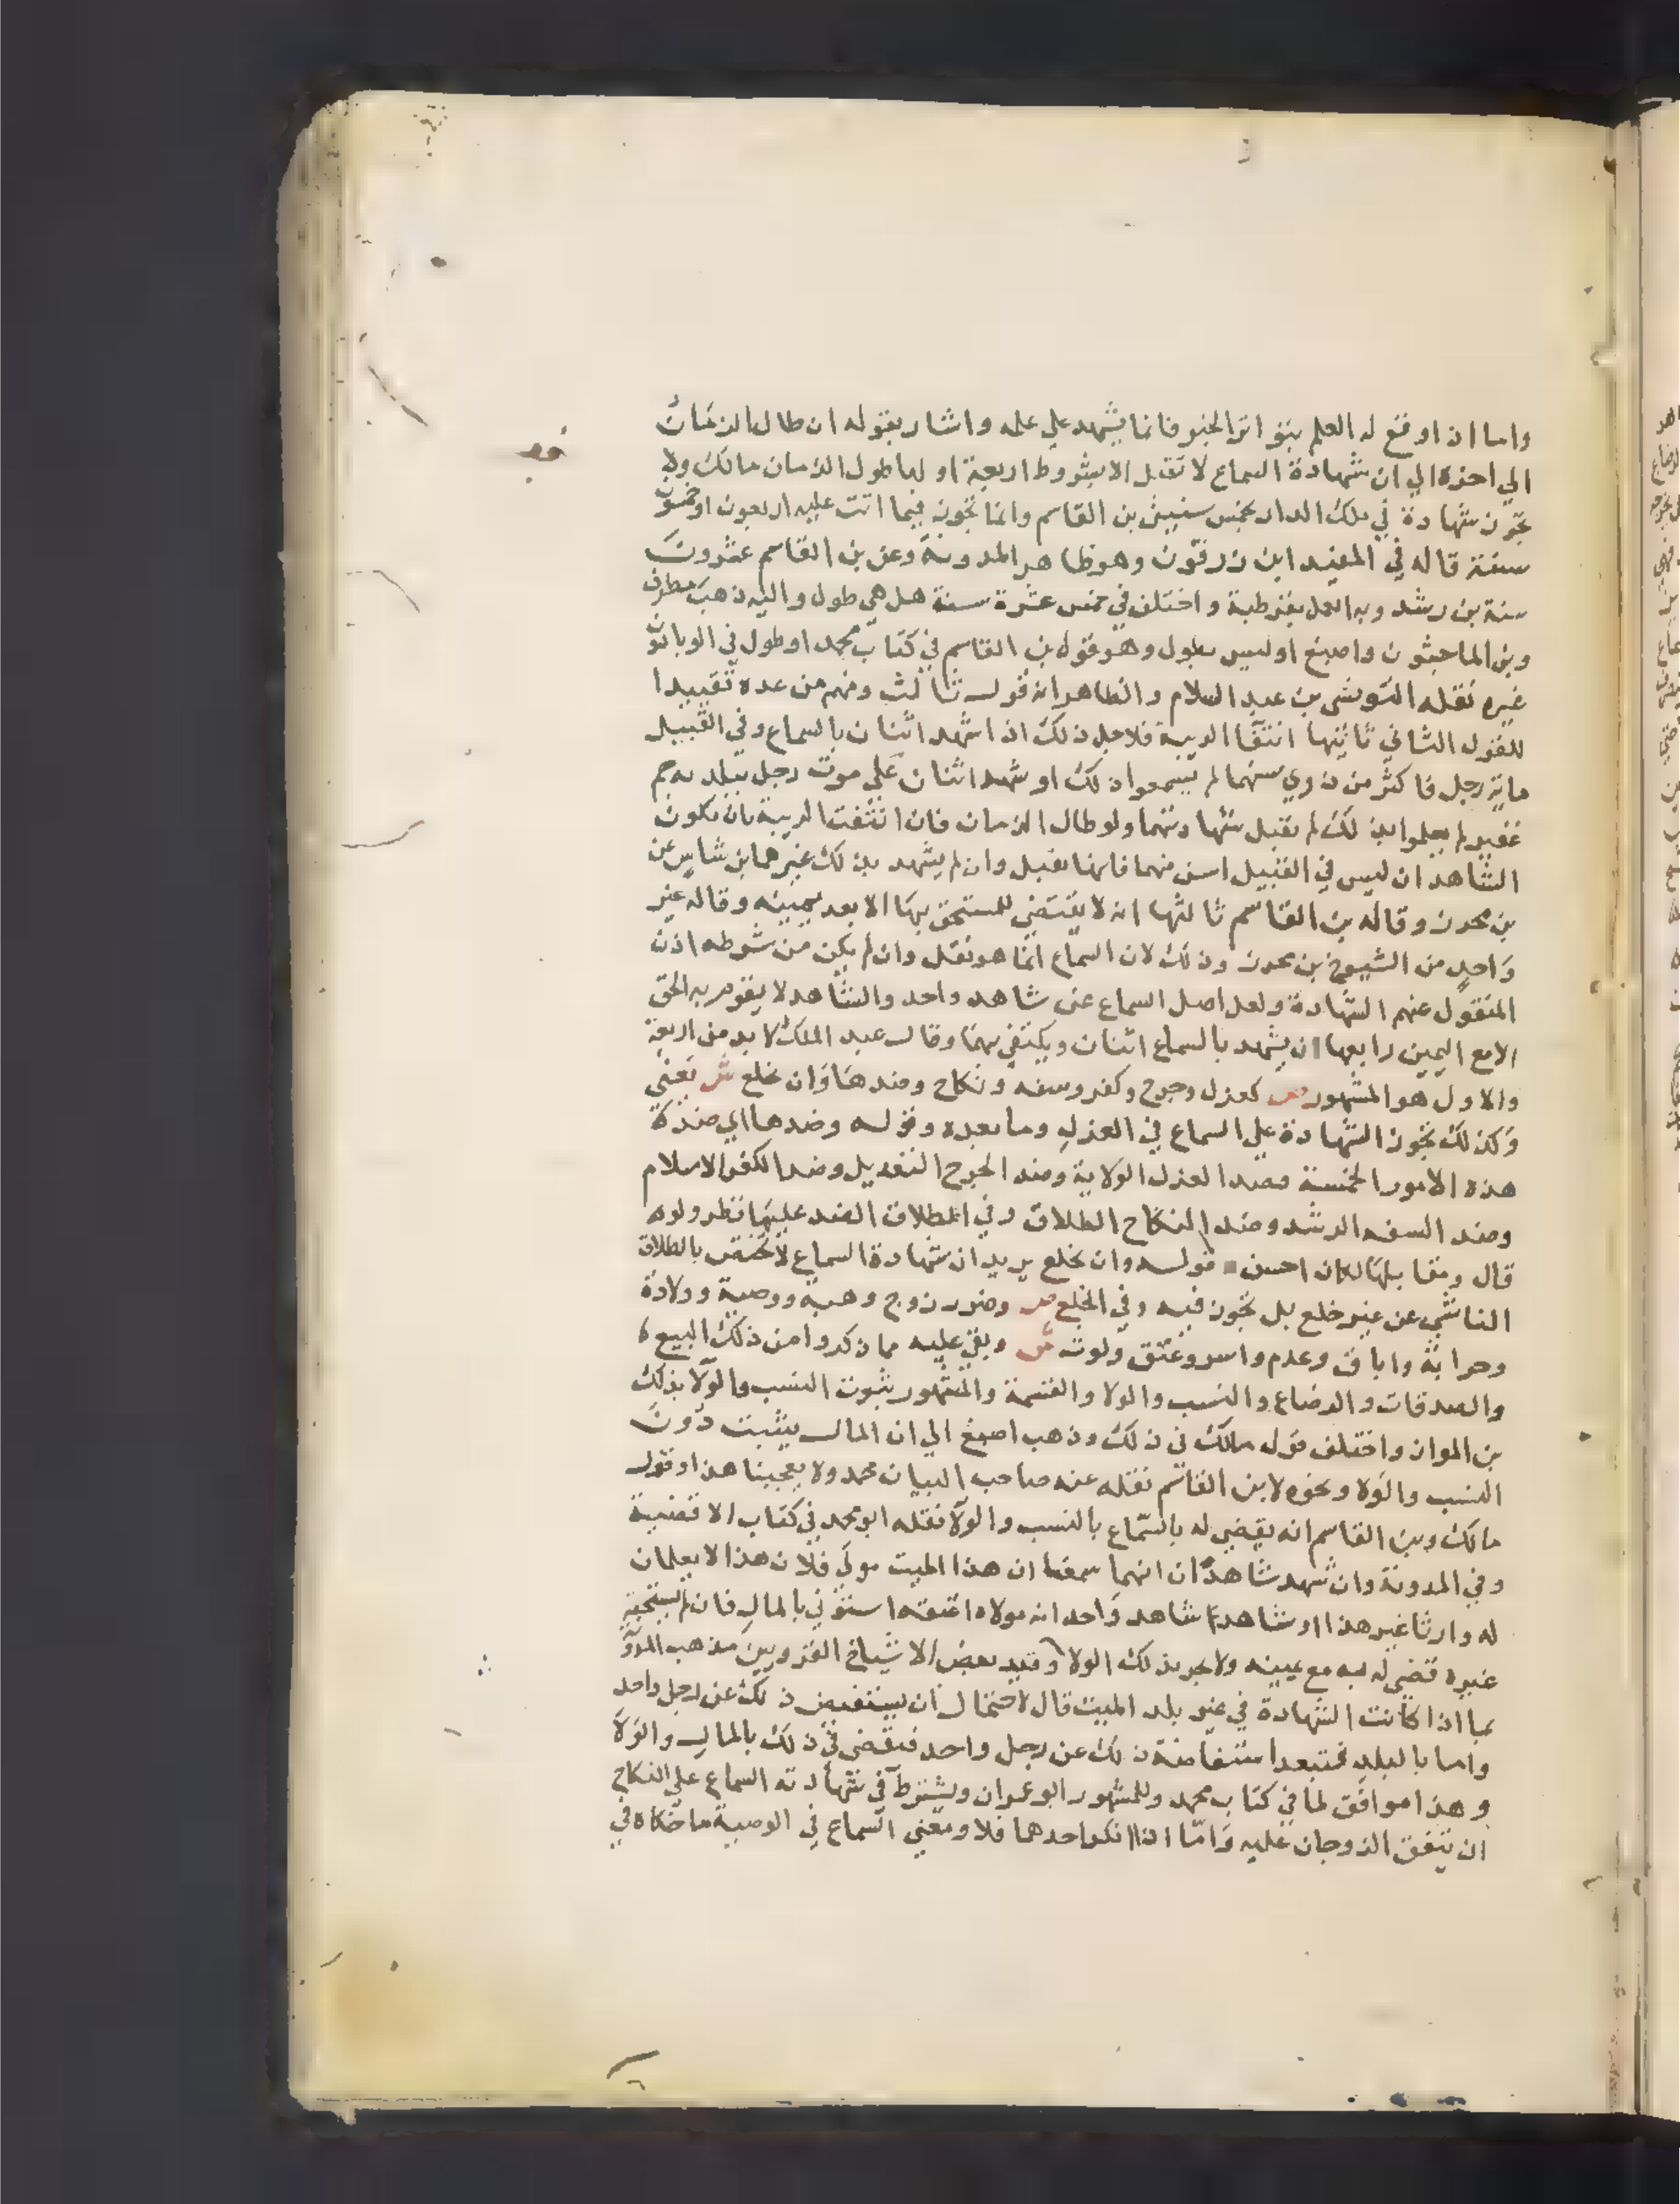 واما ان اوقع له العلم بتواتر الخبر فانما يشهد علي علمه واشار بقوله ان طال الزمان
الي اخره الي ان شهادة السماع لا تقبل الا بشروط اربعة اولها طول الزمان مالك ولا
تجوز شهادة في ملك الدار بخمس سنين بن القاسم وانما تجوز فيما اتت عليه اربعون او خمسون
سنة قاله في المفيد ابن زرقون وهو ظاهر المدونة وعن بن القاسم عشرون
سنة بن رشد وبه العمل بقرطبة واختلف في خمس عشرة سنة هل هي طول واليه ذهب مطرف
وبن الماجشون واصبغ او ليس بطول وهو قول بن القاسم في كتاب محمد او طول في الوبا دون
غيره نقله التونسي بن عبد السلام والظاهر انه قول ثالث ومنهم من عده تقييدا
للقول الثاني ثانيها انتفا الريبة فلاجل ذلك اذا شهد اثنان بالسماع وفي القبيل
ماية رجل فاكثر من ذوي سنهما لم يسمعوا ذلك او شهد اثنان علي موت رجل ببلد به جم
غفير لم يعلموا بذلك لم تقبل شهادتهما ولو طال الزمان فان انتفت الريبة بان يكون
الشاهدان ليس في القبيل اسن منهما فانها تقبل وان لم يشهد بذلك غيرهما بن شاس عن
بن محرز وقاله بن القاسم ثالثها انه لا يقتضي للمستحق بها الا بعد يمينه وقاله غير
واحد من الشيوخ بن محرز وذلك لان السماع انما هو نقل وان لم يكن من شرطه اذن
المنقول عنهم الشهادة ولعل اصل السماع عن شاهد واحد والشاهد لا يقوم به الحق
الا مع اليمين رابعها ان يشهد بالسماع اثنان ويكتفي بهما وقال عبد الملك لا بد من اربعة
والاول هو المشهور ص كعزل وجرح وكفر وسفه ونكاح وضدها وان بخلع ش يعني
وكذلك تجوز الشهادة علي السماع في العزل وما بعده وقوله وضدها اي ضد كل
هذه الامور الخمسة فضد العزل الولاية وضد الجرح التعديل وضد الكفر الاسلام
وضد السفه الرشد وضد النكاح الطلاق وفي اطلاق الضد عليها نظر ولو
قال ومقابلها لكان احسن قوله وان بخلع يريد ان شهادة السماع لا تختص بالطلاق
الناشي عن غير خلع بل تجوز فيه وفي الخلع ص وضرر زوج وهبة ووصية وولادة
وحرابة واباق وعدم واسر وعتق ولوث ش وبقي عليه مما ذكروا من ذلك البيع
والصدقات والرضاع والنسب والولا والقسمة والمشهور ثبوت النسب والولا بذلك
بن المواز واختلف قول مالك في ذلك وذهب اصبغ الي ان المال يثبت دون
النسب والولا ونحوه لابن القاسم نقله عنه صاحب البيان محمد ولا يعجبنا هذا وقول
مالك وبن القاسم انه يقضي له بالسماع بالنسب والولا نقله ابو محمد في كتاب الاقضية
وفي المدونة وان شهد شاهدان انهما سمعا ان هذا الميت مولي فلان هذا لا يعلمان
له وارثا غير هذا او شاهد شاهد واحد انه مولاه اعتقه استؤني بالمال فان لم يستحقه
غيره قضي له به مع يمينه ولا يجر بذلك الولا وقيد بعض الاشياخ القرويين مذهب المدونة
بما اذا كانت الشهادة في غير بلد الميت قال لاحتمال ان يستفيض ذلك عن رجل واحد
واما بالبلد فتبعد استفاضة ذلك عن رجل واحد فيقضي في ذلك بالمال والولا
وهذا موافق لما في كتاب محمد وللمشهور ابو عمران ويشترط في شهادته السماع علي النكاح
ان يتفق الزوجان عليه واما اذا انكر احدهما فلا ومعني السماع في الوصية ما حكاه في